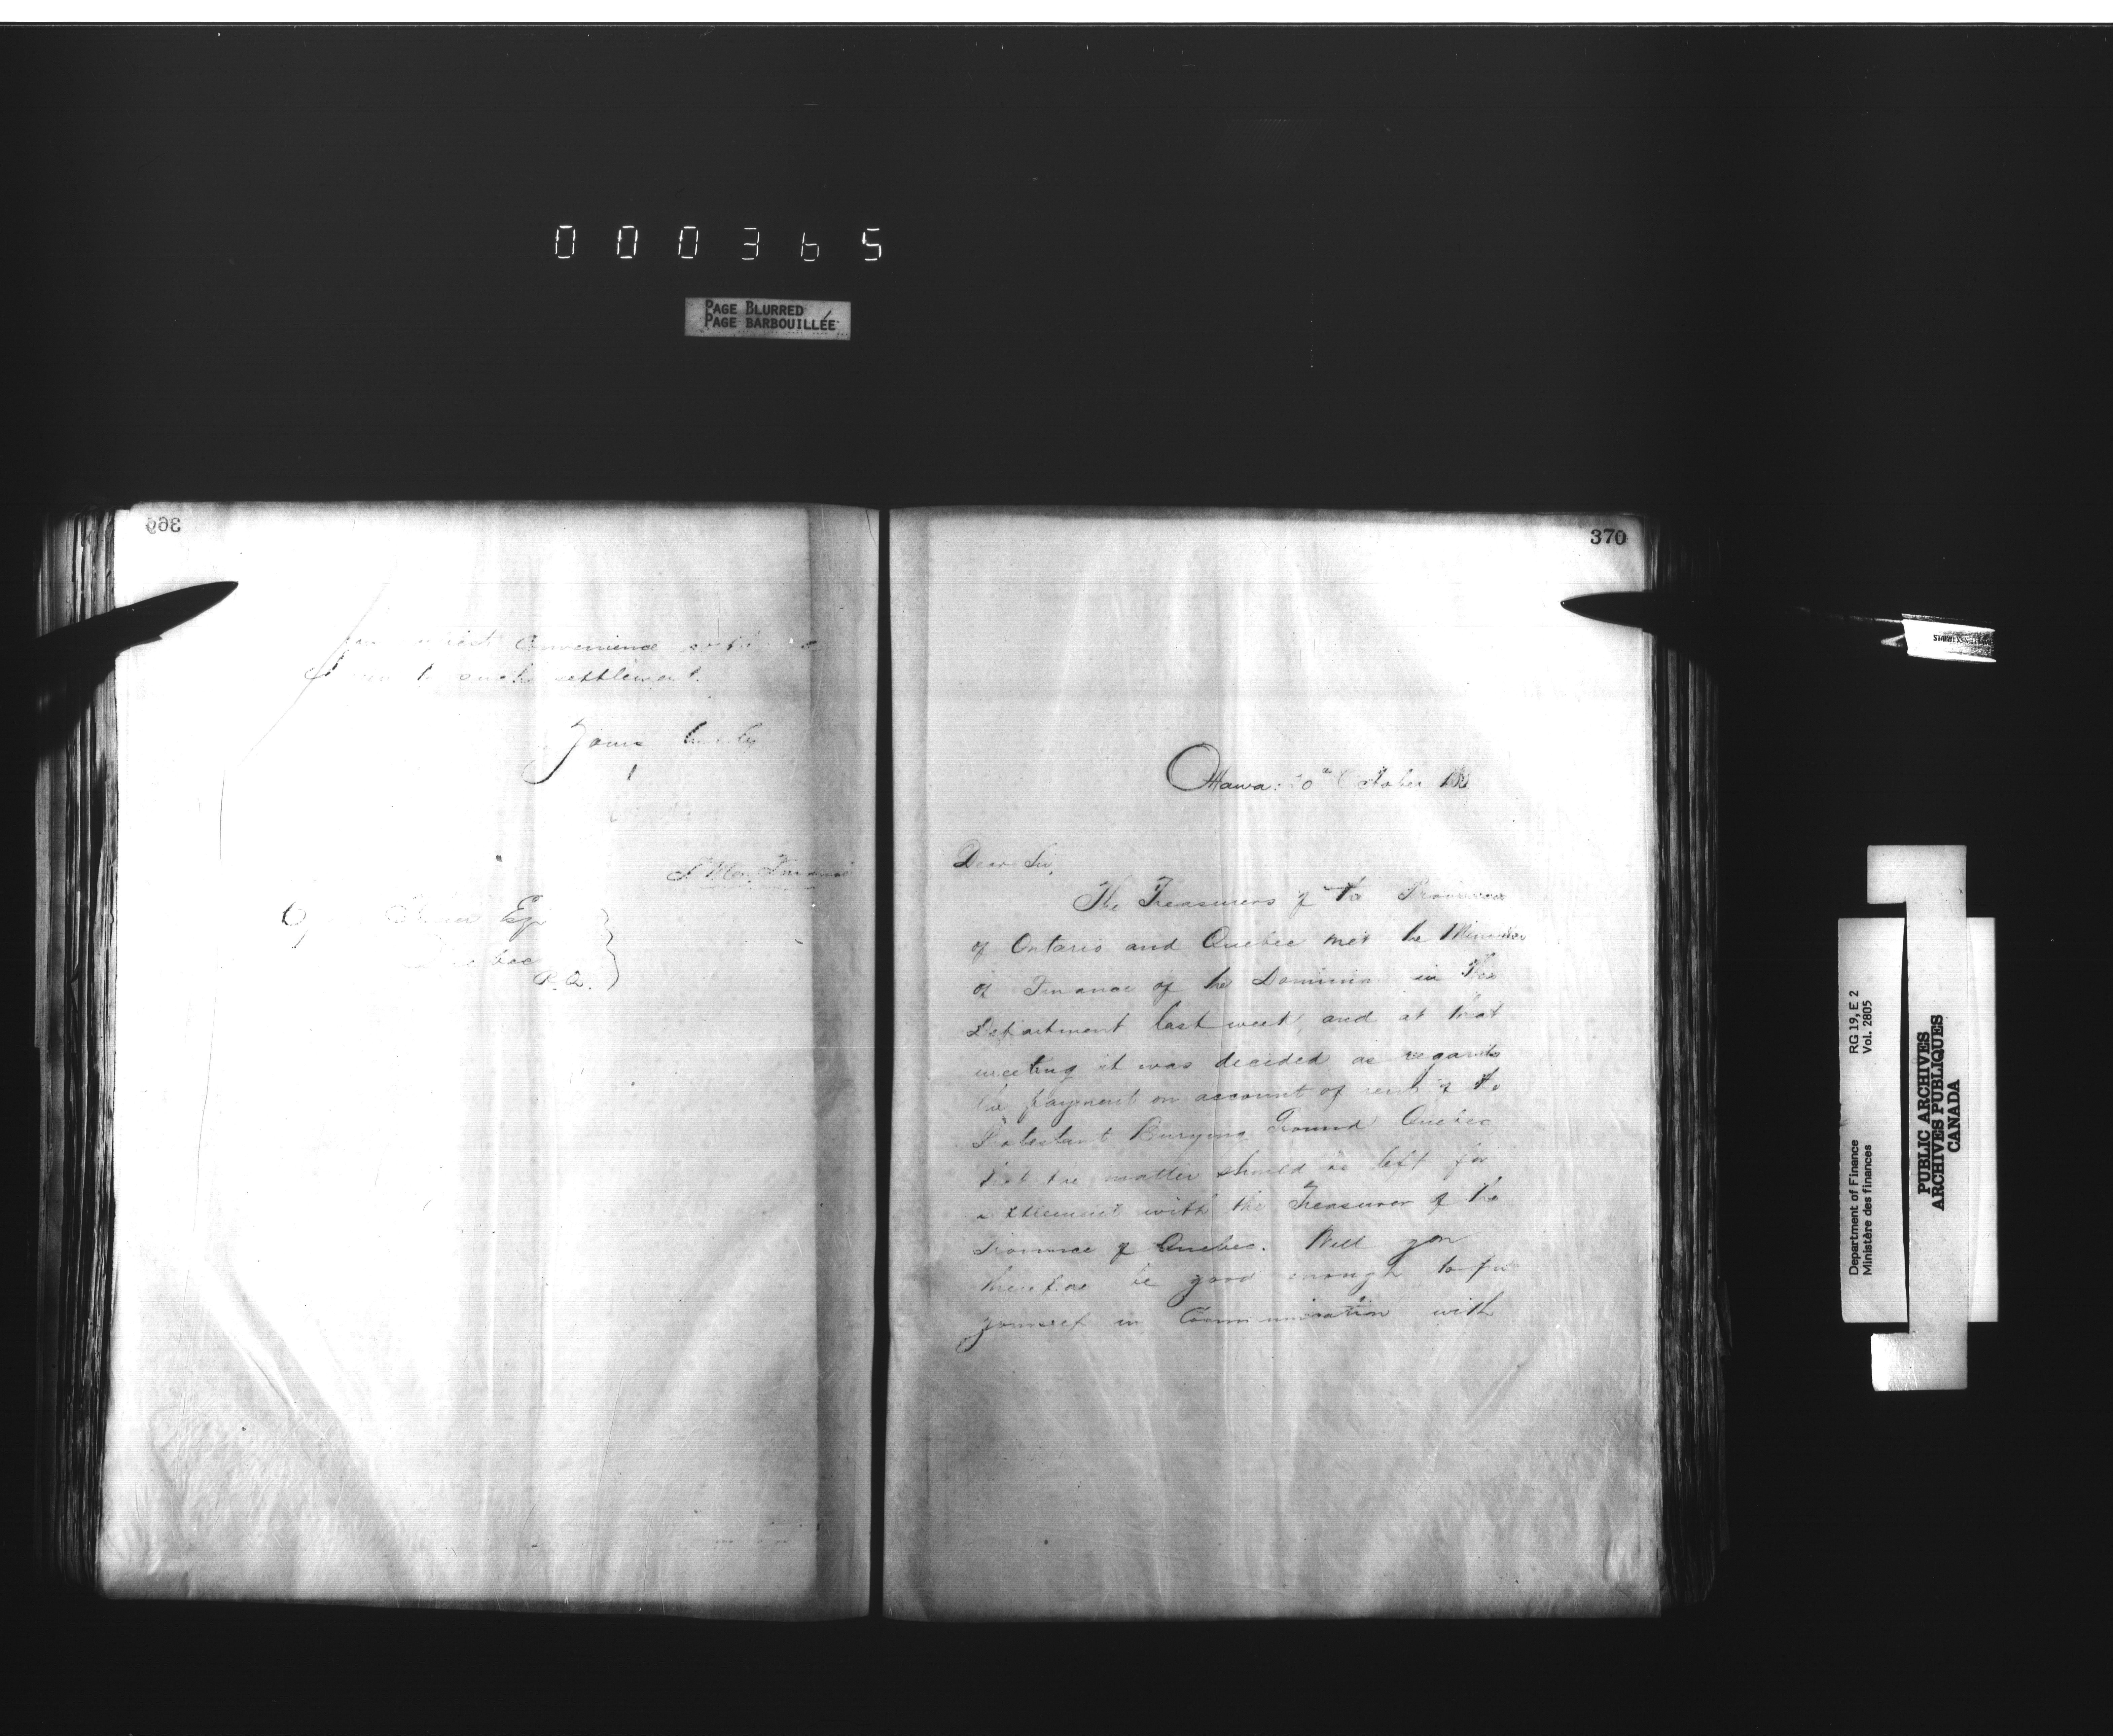 000365
PAGE BLURRED
PAGE BARBOUILLÉE
369
convenience
settlement.
Yours truly
D. Min. Finance
Esq
Quebec
P.Q.
370
Ottawa: October
Dear Sir,
The Treasurers of the Provinces
of Ontario and Quebec met the Minister
of Finance of the Dominion in this
Department last week, and at that
meeting it was decided as regards
the payment on account of rent of the
Protestant Burying Ground Quebec
that the matter should be left for
settlement with the Treasurer of the
Province of Quebec. Will you
therefore be good enough to put
yourself in Communication with
Department of Finance
Ministère des finances
RG 19, E 2
Vol. 2805
PUBLIC ARCHIVES
ARCHIVES PUBLIQUES
CANADA